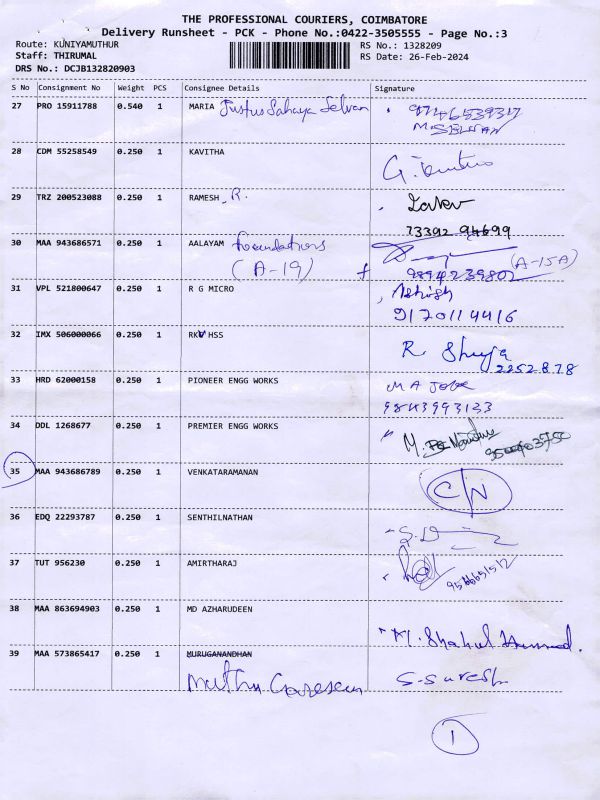 THE PROFESSIONAL COURIERS, COIMBATORE
Delivery Runsheet - PCK - Phone No.:0422-3505555 - Page No.:3
Route: KUNIYAMUTHUR RS No.: 1328209
Staff: THIRUMAL RS Date: 26-Feb-2024
DRS No.: DCJB132820903
S No Consignment No Weight PCS Consignee Details Signature
27 PRO 15911788 0.540 1 MARIA Justus Sahaya Selvan
M SELVAN
28 CDM 55258549 0.250 1 KAVITHA
29 TRZ 200523088 0.250 1 RAMESH . R.
73392 94699
30 MAA 943686571 0.250 1 AALAYAM foundations
(A-19) 9894239802 (A-15A)
31 VPL 521800647 0.250 1 R G MICRO Ashish
9170114416
32 IMX 506000066 0.250 1 RKV HSS R
2252878
33 HRD 62000158 0.250 1 PIONEER ENGG WORKS M A
9843993133
34 DDL 1268677 0.250 1 PREMIER ENGG WORKS M.
35 MAA 943686789 0.250 1 VENKATARAMANAN C/N
36 EDQ 22293787 0.250 1 SENTHILNATHAN
37 TUT 956230 0.250 1 AMIRTHARAJ
38 MAA 863694903 0.250 1 MD AZHARUDEEN M. Shahul Hameed.
39 MAA 573865417 0.250 1 MURUGANANDHAN
Muthu Ganesan S-Suresh
1